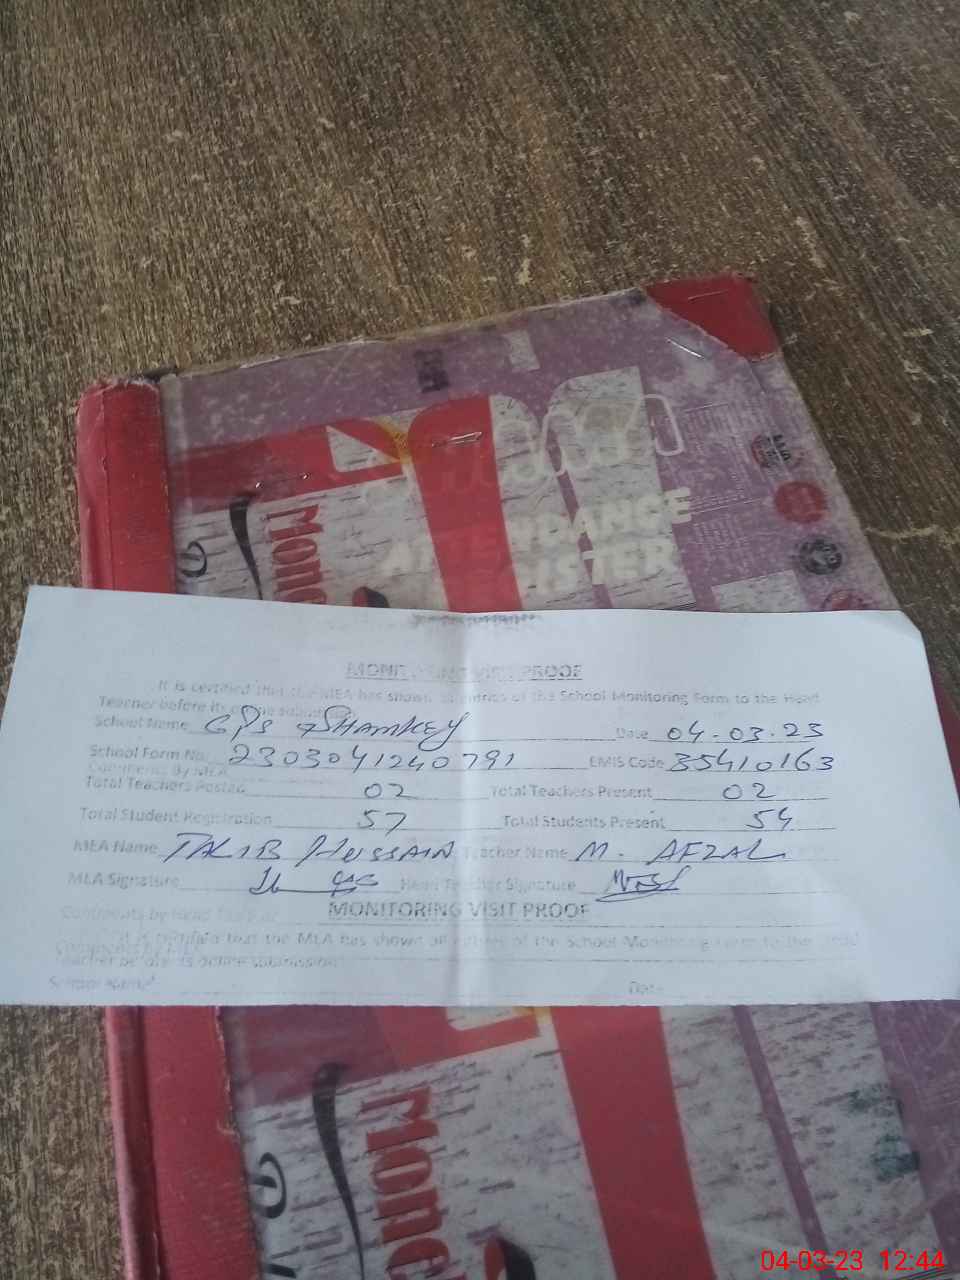 ATTENDANCE
REGISTER
Mone
MONITORING VISIT PROOF
It is certified that the MEA has shown all entries of the School Monitoring Form to the Head
Teacher before its online submission
School Name GPS SHAMKEY Date 04-03-23
School Form No. 2303041240791 EMIS Code 35410163
Comments By MEA
Total Teachers Posted 02 Total Teachers Present 02
Total Student Registration 57 Total Students Present 54
MEA Name TALIB HUSSAIN Teacher Name M. AFZAL
MEA Signature Head Teacher Signature
Comments by Head Teacher
MONITORING VISIT PROOF
It is certified that the MEA has shown all entries of the School Monitoring Form to the Head
Teacher before its online submission
School Name Date
Mone
04-03-23 12:44